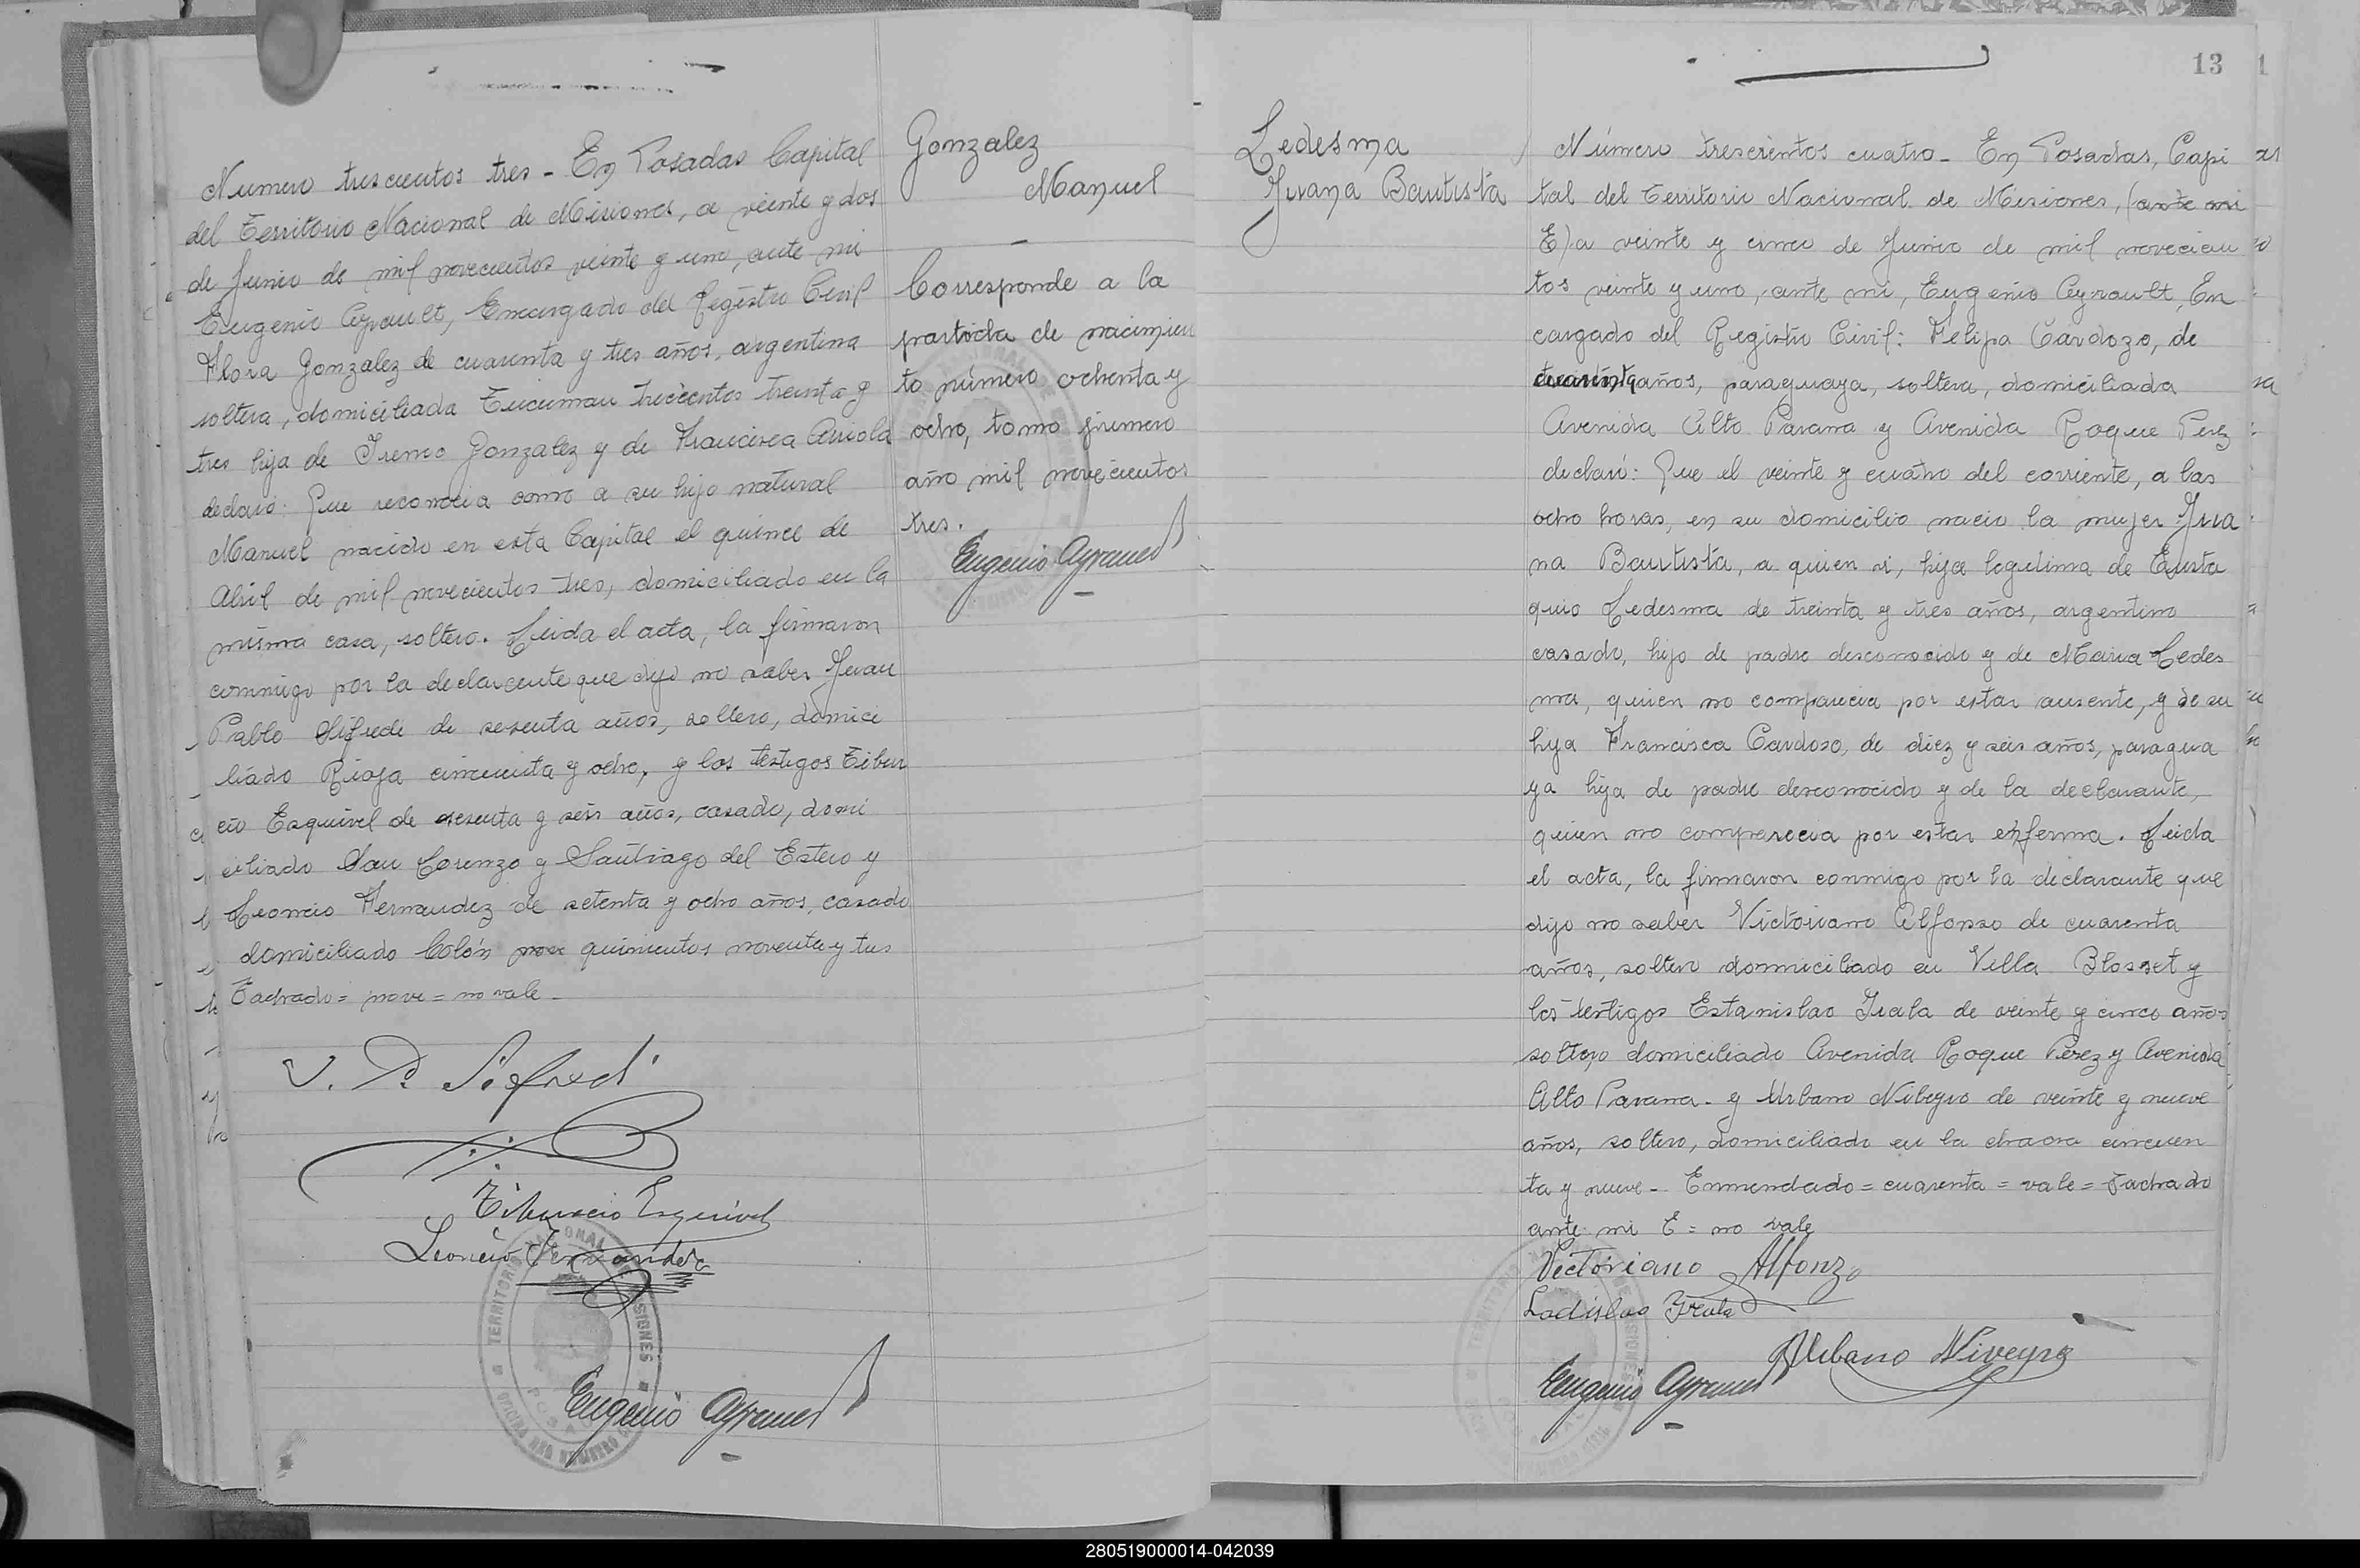 Numero trescientos tres - En Posadas Capital
del Territorio Nacional de Misiones, a veinte y dos
de Junio de mil novecientos veinte y uno, ante mi
Eugenio Ayrault, Encargado del Registro Civil
Flora Gonzalez de cuarenta y tres años, argentina
soltera, domiciliada Tucuman trescientos treinta y
tres hija de Ireneo Gonzalez y de Francisca Arriola
declaró: Que reconocia como a su hijo natural
Manuel nacido en esta Capital el quince de
Abril de mil novecientos tres, domiciliado en la
misma casa, soltero. Leida el acta, la firmaron
conmigo por la declarante que dijo no saber Juan
Pablo Sifredi de sesenta años, soltero, domici
liado Rioja cincuenta y ocho, y los testigos Tibur
cio Esquivel de sesenta y seis años, casado, domi
ciliado San Lorenzo y Santiago del Estero y
Leoncio Fernandez de setenta y ocho años, casado
domiciliado Colón nove quinientos noventa y tres
Tachado = nove = no vale -
J. P. Sifredi
Tiburcio Esquivel
Leoncio Fernandez
TERRITORIO NACIONAL DE MISIONES
Eugenio Ayrault
Gonzalez
Manuel
Corresponde a la
partida de nacimien
to número ochenta y
ocho, tomo primero
año mil novecientos
tres.
Eugenio Ayrault
13
Ledesma
Juana Bautista
Número trescientos cuatro - En Posadas, Capi
tal del Territorio Nacional de Misiones, (ante mi
E) a veinte y cinco de Junio de mil novecien
tos veinte y uno, ante mi, Eugenio Ayrault, En
cargado del Registro Civil: Felipa Cardozo, de
cuarenta años, paraguaya, soltera, domiciliada
Avenida Alto Parana y Avenida Roque Perez
declaró: Que el veinte y cuatro del corriente, a las
ocho horas, en su domicilio nacio la mujer Jua
na Bautista, a quien vi, hija legitima de Eusta
quio Ledesma de treinta y tres años, argentino
casado, hijo de padre desconocido y de Maria Ledes
ma, quien no comparecia por estar ausente, y de su
hija Francisca Cardoso, de diez y seis años, paragua
ya hija de padre desconocido y de la declarante,
quien no comparecia por estar enferma. Leida
el acta, la firmaron conmigo por la declarante que
dijo no saber Victoriano Alfonso de cuarenta
años, soltero domiciliado en Villa Blosset y
los testigos Estanislao Irala de veinte y cinco años
soltero domiciliado Avenida Roque Perez y Avenida
Alto Parana - y Urbano Nibeyro de veinte y nueve
años, soltero, domiciliado en la chacra cincuen
ta y nueve - Enmendado = cuarenta = vale = Tachado
ante mi E = no vale
Victoriano Alfonzo
Ladislao Yrala
Urbano Niveyro
Eugenio Ayrault
280519000014-042039